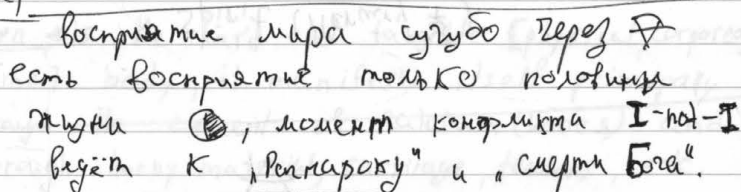 восприятие мира сугубо через
есть восприятие только половины
жизни , момент конфликта I-not-I
ведёт к „Рагнароку" и „смерти Бога".